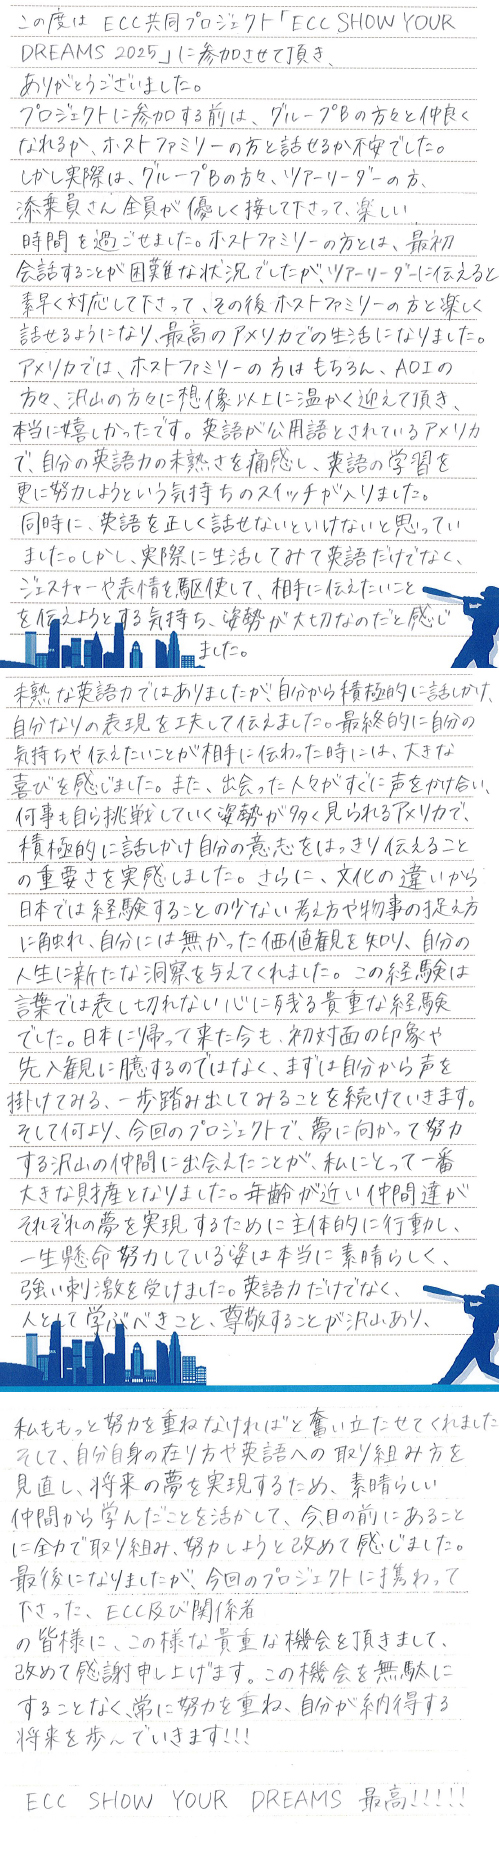 この度は ECC共同プロジェクト「ECC SHOW YOUR
DREAMS 2025」に参加させて頂き、
ありがとうございました。
プロジェクトに参加する前は、グループBの方々と仲良く
なれるか、ホストファミリーの方と話せるか不安でした。
しかし実際は、グループBの方々、ツアーリーダーの方、
添乗員さん全員が優しく接して下さって、楽しい
時間を過ごせました。ホストファミリーの方とは、最初
会話することが困難な状況でしたが、ツアーリーダーに伝えると
素早く対応して下さって、その後ホストファミリーの方と楽しく
話せるようになり、最高のアメリカでの生活になりました。
アメリカでは、ホストファミリーの方はもちろん、AOIの
方々、沢山の方々に想像以上に温かく迎えて頂き、
本当に嬉しかったです。英語が公用語とされているアメリカ
で、自分の英語力の未熟さを痛感し、英語の学習を
更に努力しようという気持ちのスイッチが入りました。
同時に、英語を正しく話せないといけないと思ってい
ました。しかし、実際に生活してみて英語だけでなく、
ジェスチャーや表情を駆使して、相手に伝えたいこと
を伝えようとする気持ち、姿勢が大切なのだと感じ
ました。
未熟な英語力ではありましたが、自分から積極的に話しかけ、
自分なりの表現を工夫して伝えました。最終的に自分の
気持ちや伝えたいことが相手に伝わった時には、大きな
喜びを感じました。また、出会った人々がすぐに声をかけ合い、
何事も自ら挑戦していく姿勢が多く見られるアメリカで、
積極的に話しかけ自分の意志をはっきり伝えること
の重要さを実感しました。さらに、文化の違いから
日本では経験することの少ない考え方や物事の捉え方
に触れ、自分には無かった価値観を知り、自分の
人生に新たな洞察を与えてくれました。この経験は
言葉では表し切れない心に残る貴重な経験
でした。日本に帰って来た今も、初対面の印象や
先入観に臆するのではなく、まずは自分から声を
掛けてみる、一歩踏み出してみることを続けていきます。
そして何より、今回のプロジェクトで、夢に向かって努力
する沢山の仲間に出会えたことが、私にとって一番
大きな財産となりました。年齢が近い仲間達が
それぞれの夢を実現するために主体的に行動し、
一生懸命努力している姿は本当に素晴らしく、
強い刺激を受けました。英語力だけでなく、
人として学ぶべきこと、尊敬することが沢山あり、
私ももっと努力を重ねなければと奮い立たせてくれました
そして、自分自身の在り方や英語への取り組み方を
見直し、将来の夢を実現するため、素晴らしい
仲間から学んだことを活かして、今目の前にあること
に全力で取り組み、努力しようと改めて感じました。
最後になりましたが、今回のプロジェクトに携わって
下さった、ECC及び関係者
の皆様に、この様な貴重な機会を頂きまして、
改めて感謝申し上げます。この機会を無駄に
することなく、常に努力を重ね、自分が納得する
将来を歩んでいきます!!!
ECC SHOW YOUR DREAMS 最高!!!!!